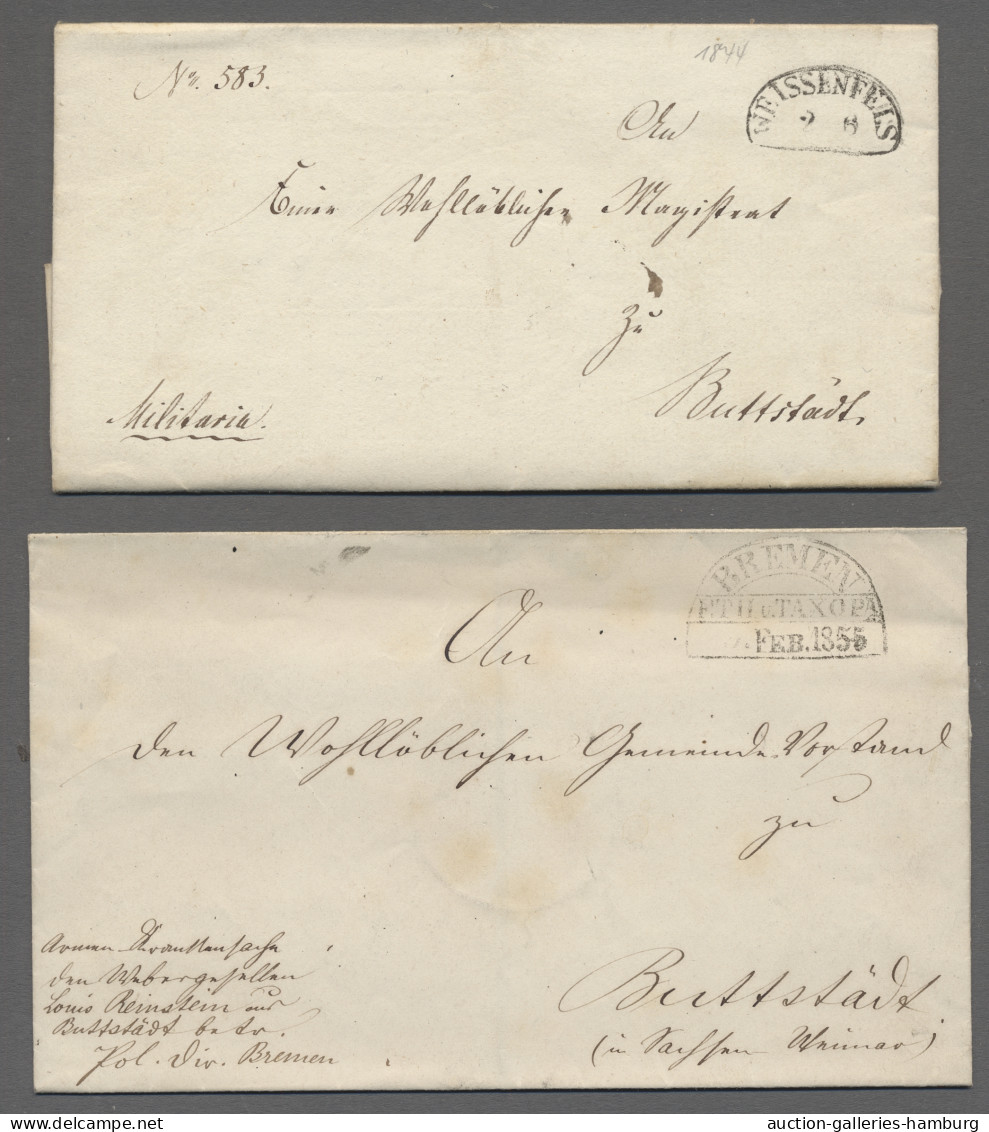 No. 583.
1844
WEISSENFELS
2 6
An
Einen Wohllöblichen Magistrat
zu
Buttstädt
Militaria.
BREMEN
FEB. 1855
An
den Wohllöblichen Gemeinde Vorstand
zu
Armen-Krankensache
den Webergesellen
Louis Reinstein aus
Buttstädt betr.
Pol. Dir. Bremen
Buttstädt
(in Sachsen Weimar)
auction-galleries-hamburg